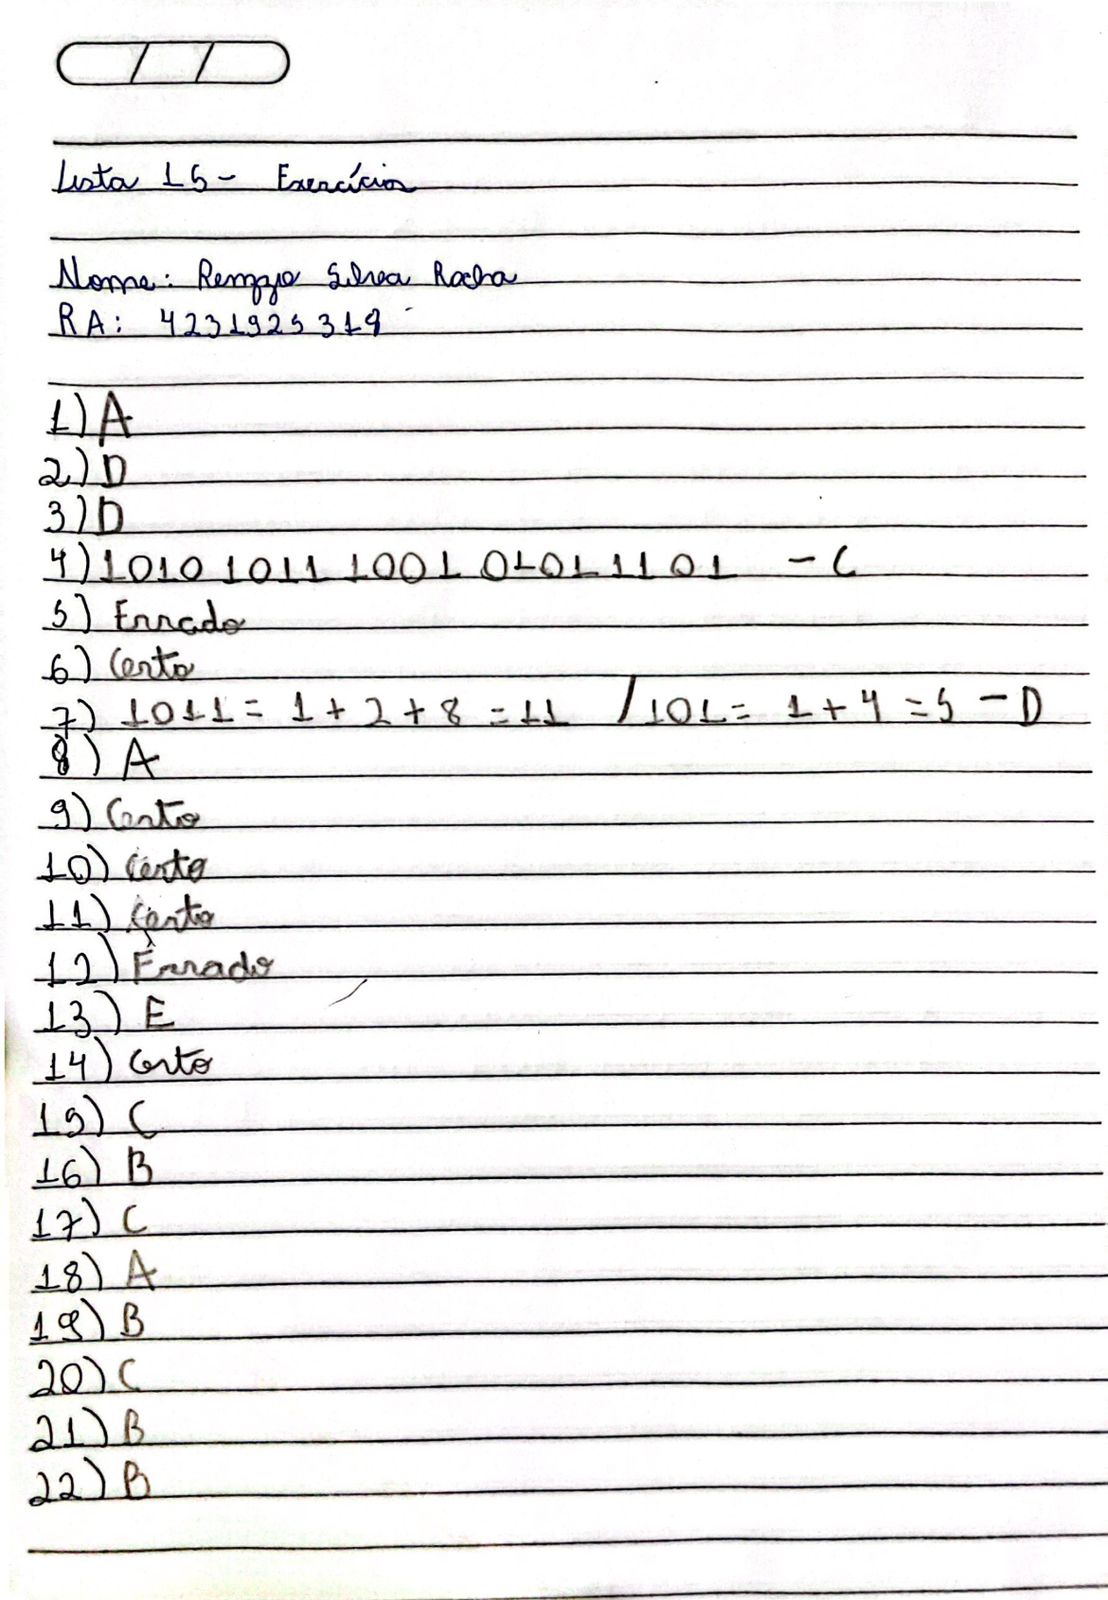 Lista 15 - Exercícios
Nome: Renzzo Silva Rocha
RA: 4231925319
1) A
2) D
3) D
4) 1010 1011 1001 0101 1101 - C
5) Errado
6) Certo
7) 1011 = 1 + 2 + 8 = 11 / 101 = 1 + 4 = 5 - D
8) A
9) Certo
10) Certo
11) Certo
12) Errado
13) E
14) Certo
15) C
16) B
17) C
18) A
19) B
20) C
21) B
22) B